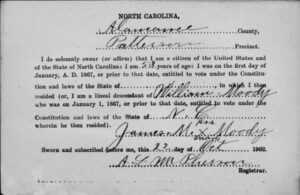 NORTH CAROLINA,
Alamance County,
Patterson Precinct.
I do solemnly swear (or affirm) that I am a citizen of the United States and
of the State of North Carolina: I am 53 years of age: I was on the first day of
January, A. D. 1867, or prior to that date, entitled to vote under the Constitu-
tion and laws of the State of in which I then
resided (or, I am a lineal descendant of William Moody
who was on January 1, 1867, or prior to that date, entitled to vote under the
Constitution and laws of the State of N. C.
wherein he then resided).
his
James M. X Moody
mark
Sworn and subscribed before me, this 22 day of Oct 1902.
A. L. McPherson
Registrar.